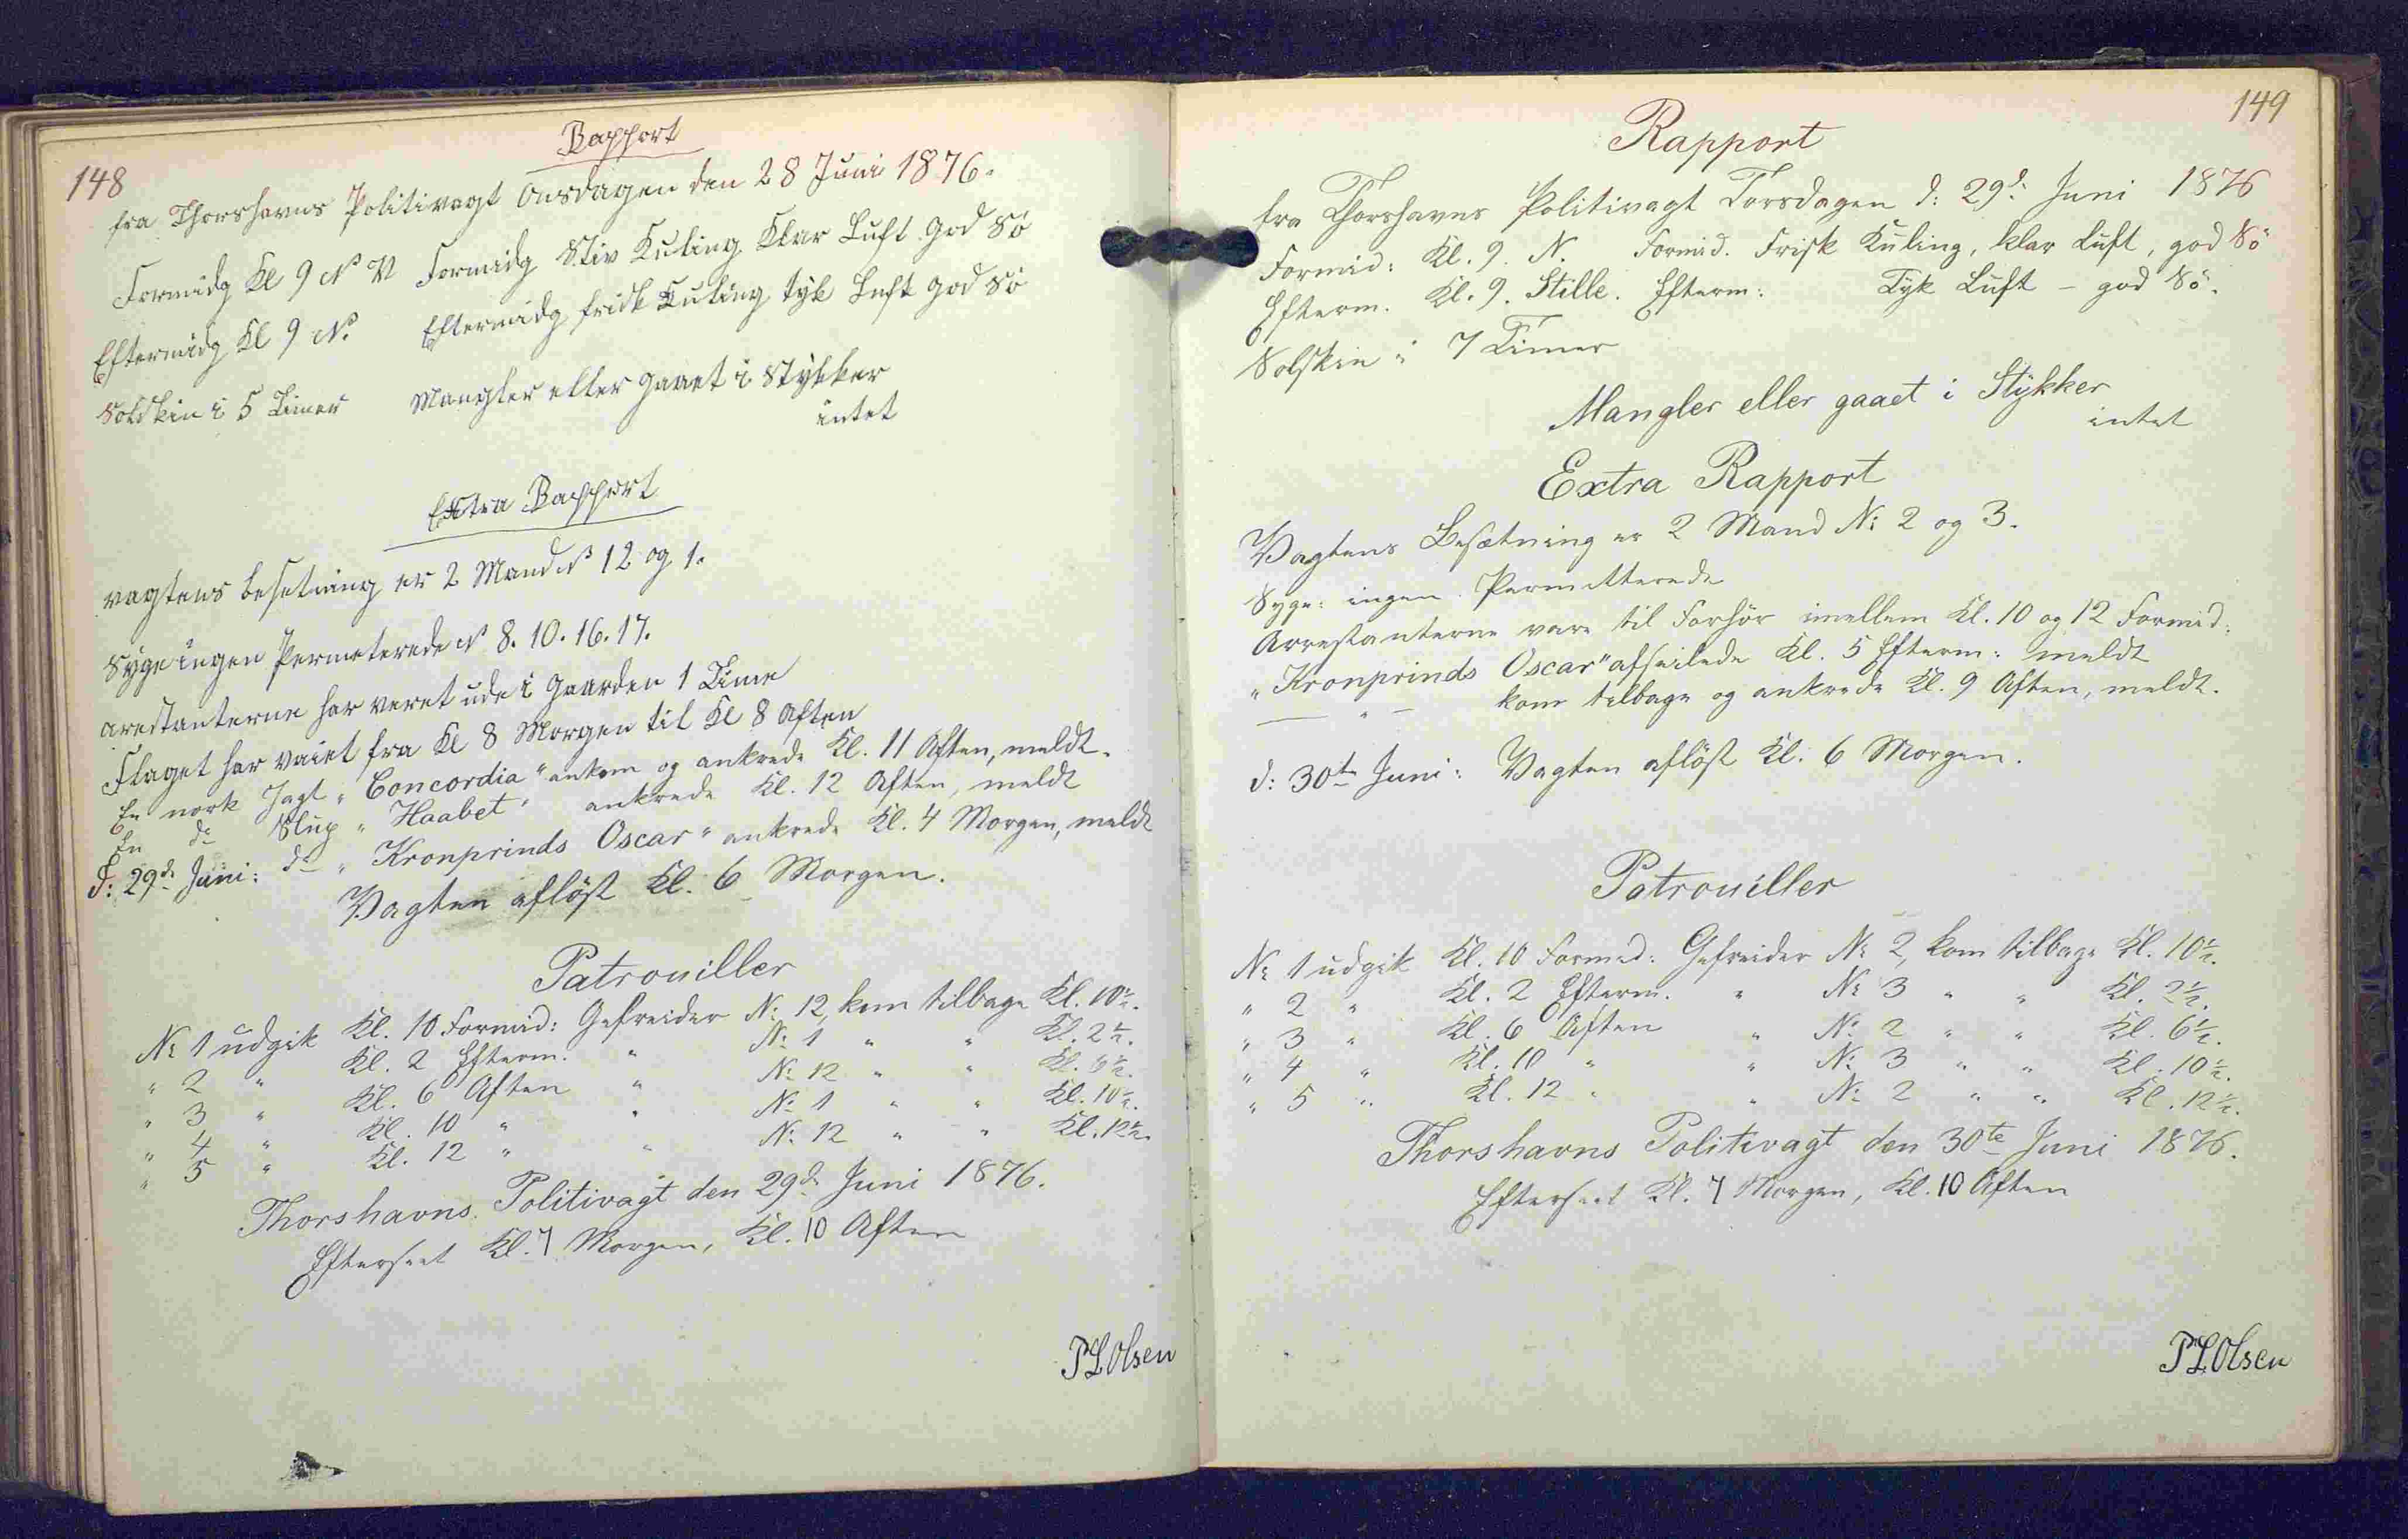 148
Rapport
fra Thorshavns Politivagt Onsdagen den 28 Juni 1876.
Formidg Kl 9 N V Formidg Stiv Kuling Klar Luft God Sö
Eftermidg Kl 9 N. Eftermidg frisk Kuling tyk Luft God Sö
Solskin i 5 Timer Mangler eller gaaet i Stykker
intet
Extra Rapport
vagtens besetning er 2 Mand N 12 og 1.
Syge ingen Permeterede N 8. 10. 16. 17.
arestanterne har veret ude i Gaarden 1 Time
Flaget har vaiet fra Kl 8 Morgen til Kl 8 Aften
En norsk Jagt „Concordia" ankom og ankrede Kl. 11 Aften, meldt.
En do Slup „Haabet" ankrede Kl. 12 Aften, meldt
d: 29de Juni: do „Kronprinds Oscar" ankrede Kl. 4 Morgen, meldt
Vagten aflöst Kl. 6 Morgen.
Patrouiller
No 1 udgik Kl. 10 Formid: Gefreider No 12, kom tilbage Kl. 10½.
" 2 " Kl. 2 Efterm. " No 1 " " Kl. 2½.
" 3 " Kl. 6 Aften " No 12 " " Kl. 6½.
" 4 " Kl. 10 " " No 1 " " Kl. 10½.
" 5 " Kl. 12 " " No 12 " " Kl. 12½.
Thorshavns Politivagt den 29de Juni 1876.
Efterseet Kl. 7 Morgen, Kl. 10 Aften
P L Olsen
149
Rapport
fra Thorshavns Politivagt Torsdagen d: 29de Juni 1876
Formid: Kl. 9. N. Formid. Frisk Kuling, klar Luft, god Sö
Efterm. Kl. 9. Stille. Efterm: Tyk Luft – god Sö.
Solskin i 7 Timer
Mangler eller gaaet i Stykker
intet
Extra Rapport
Vagtens Besætning er 2 Mand No 2 og 3.
Syge: ingen. Permitterede
Arrestanterne vare til Forhör imellem Kl. 10 og 12 Formid:
„Kronprinds Oscar" afseilede Kl. 5 Efterm: meldt
— " — kom tilbage og ankrede Kl. 9 Aften, meldt.
d: 30te Juni: Vagten aflöst Kl. 6 Morgen.
Patrouiller
No 1 udgik Kl. 10 Formid: Gefreider No 2, kom tilbage Kl. 10½.
" 2 " Kl. 2 Efterm. " No 3 " " Kl. 2½.
" 3 " Kl. 6 Aften " No 2 " " Kl. 6½.
" 4 " Kl. 10 " " No 3 " " Kl. 10½.
" 5 " Kl. 12 " " No 2 " " Kl. 12½.
Thorshavns Politivagt den 30te Juni 1876.
Efterseet Kl. 7 Morgen, Kl. 10 Aften
P L Olsen